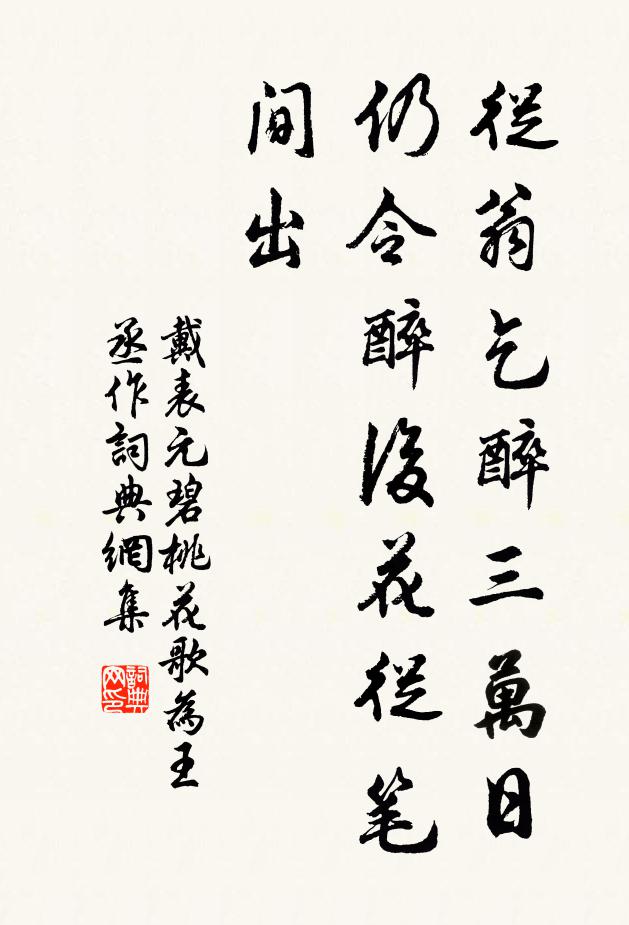 從翁乞醉三萬日
仍令醉後花從笔
间出
戴表元碧桃花歌為王
丞作詞典網集
詞典
网印